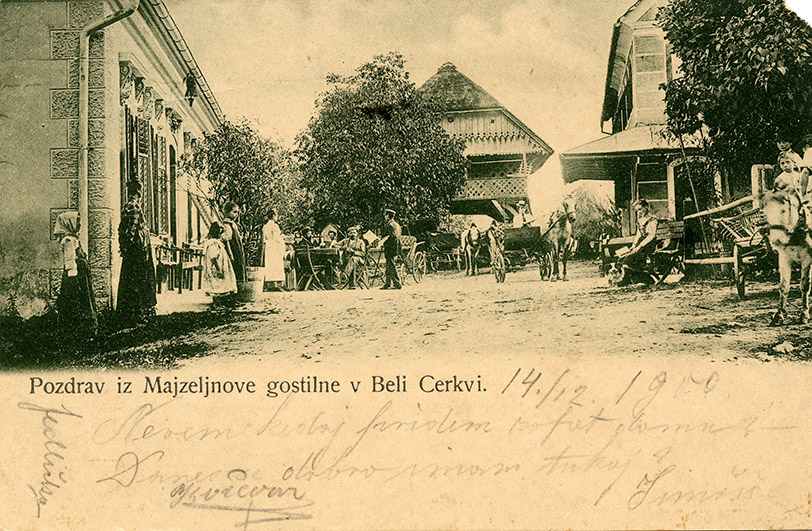 Pozdrav iz Majzeljnove gostilne v Beli Cerkvi. 14./12. 1900
Nevem kedaj pridem zopet domu
Danes se dobro imam tukaj
Simon